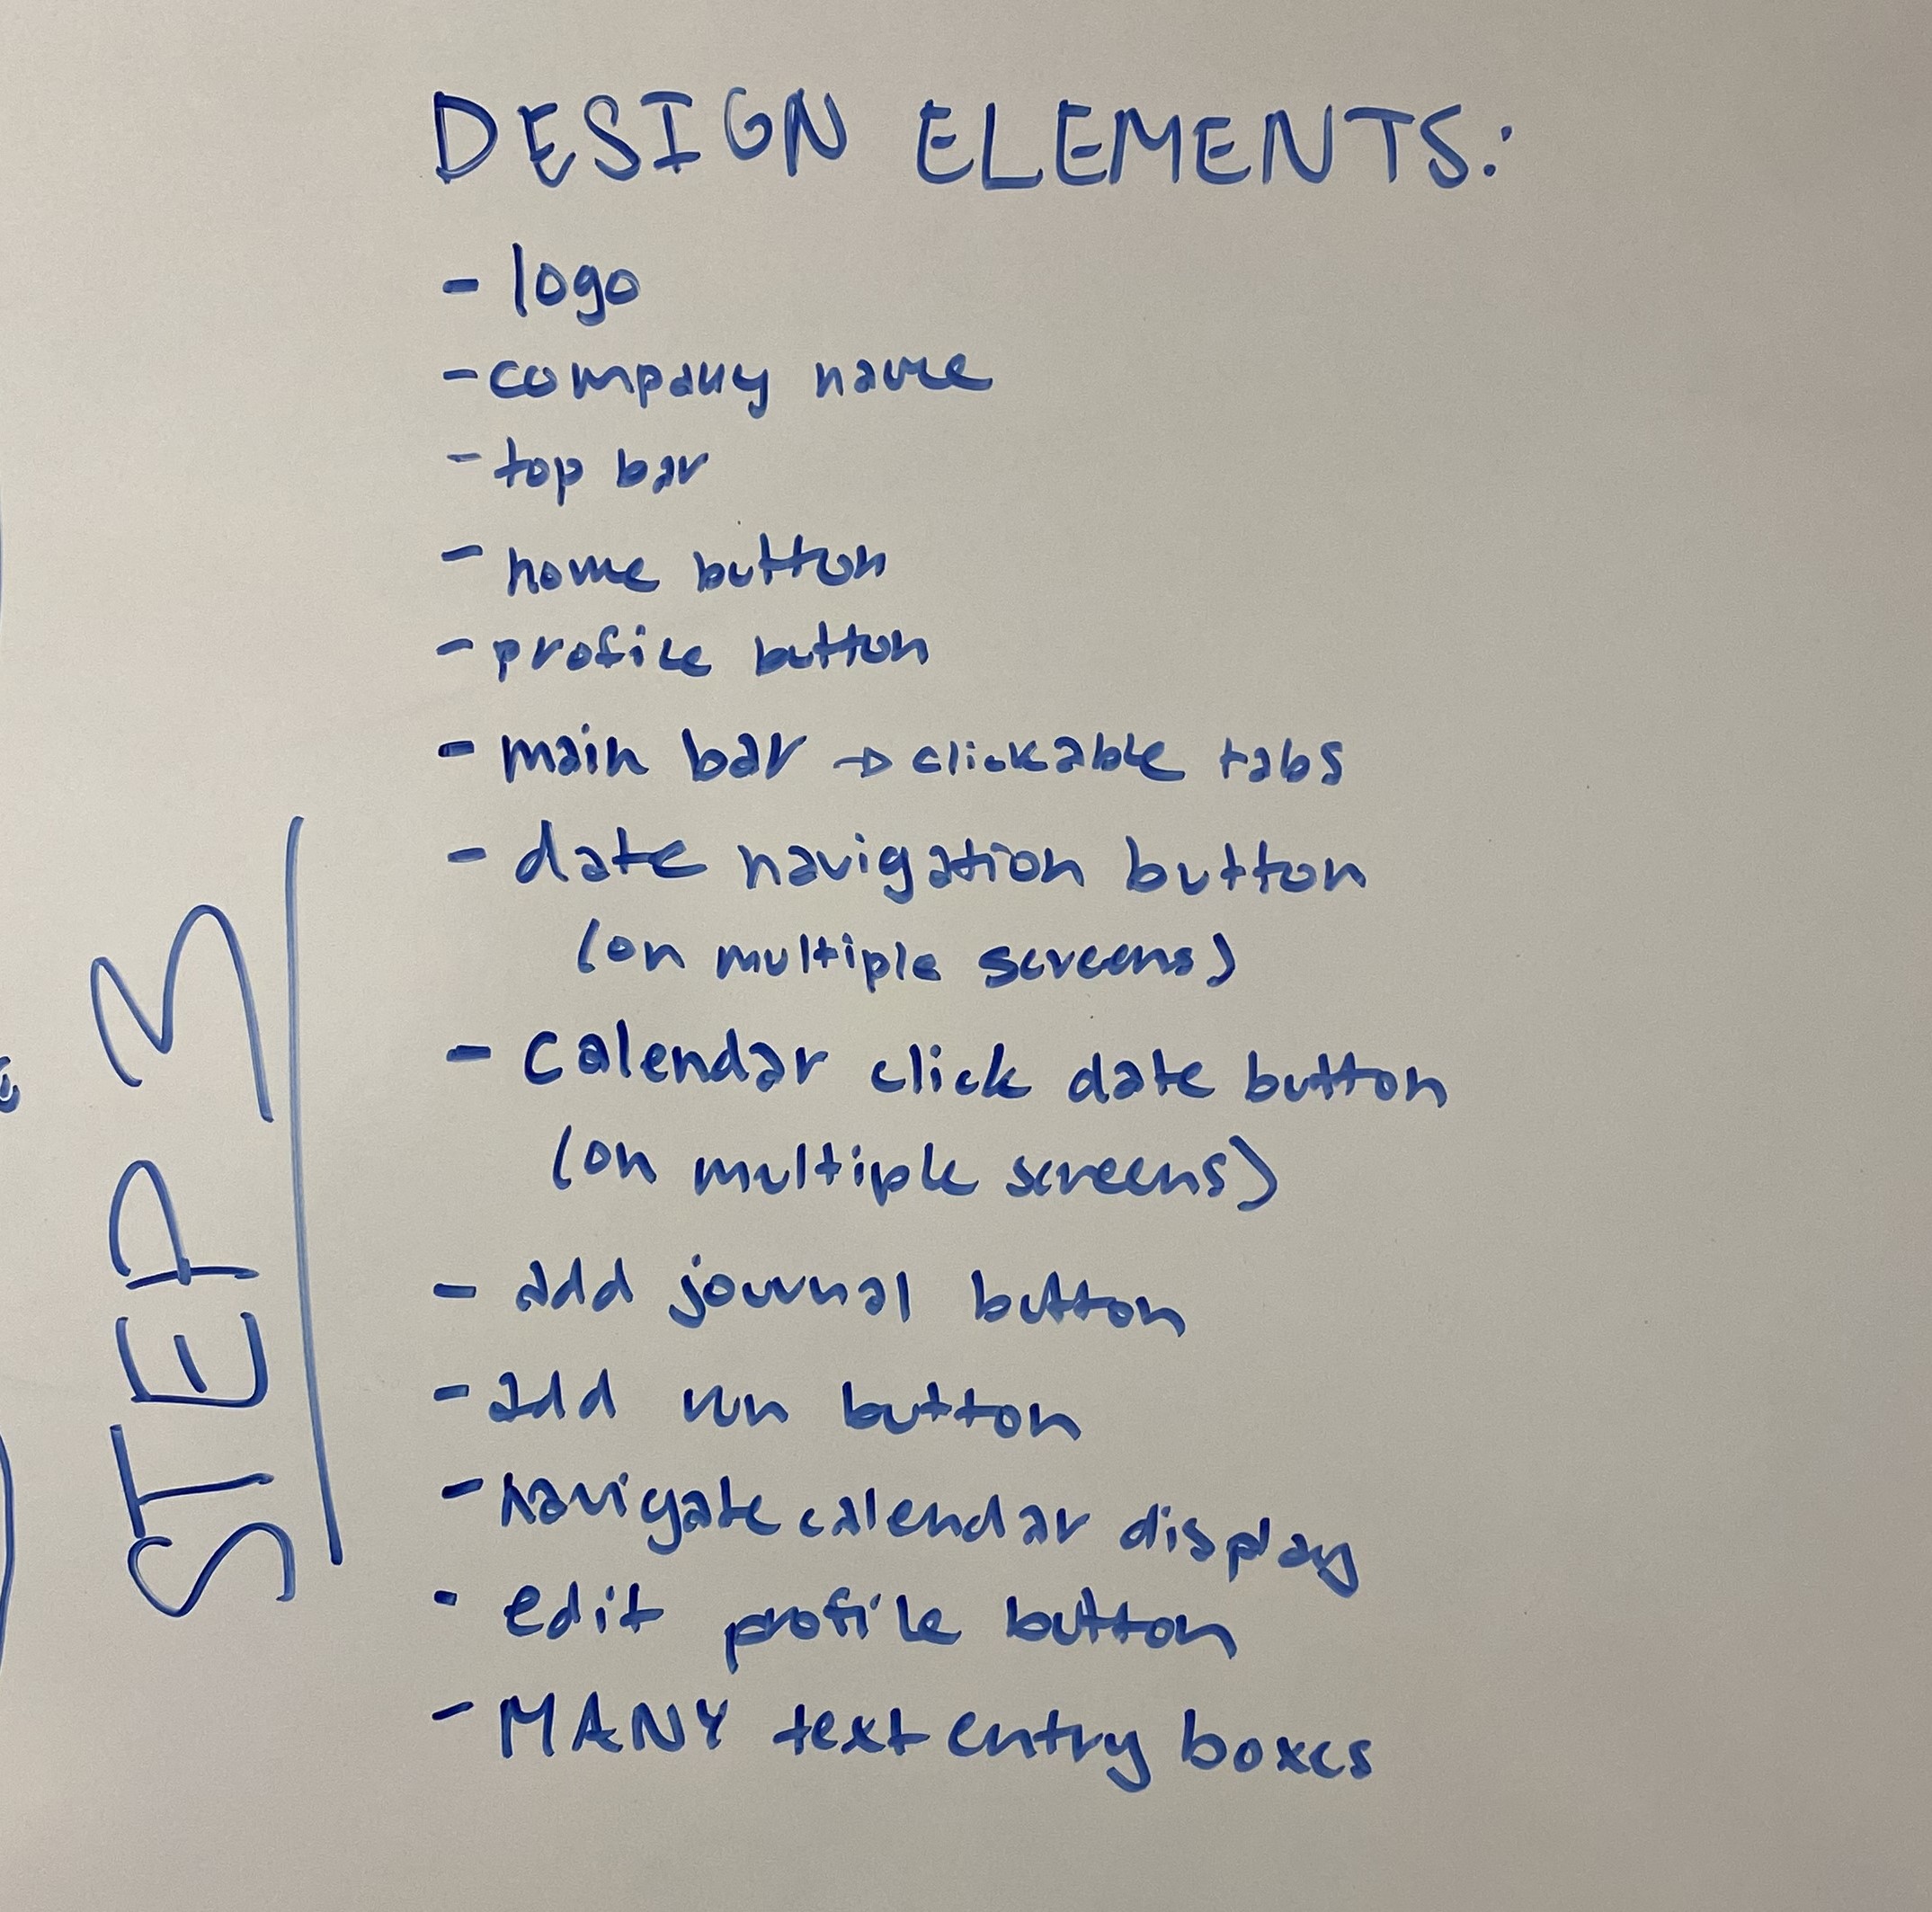 DESIGN ELEMENTS:
- logo
- company name
- top bar
- home button
- profile button
- main bar → clickable tabs
- date navigation button
(on multiple screens)
- Calendar click date button
(on multiple screens)
- add journal button
- add run button
- navigate calendar display
- edit profile button
- MANY text entry boxes
STEP 3